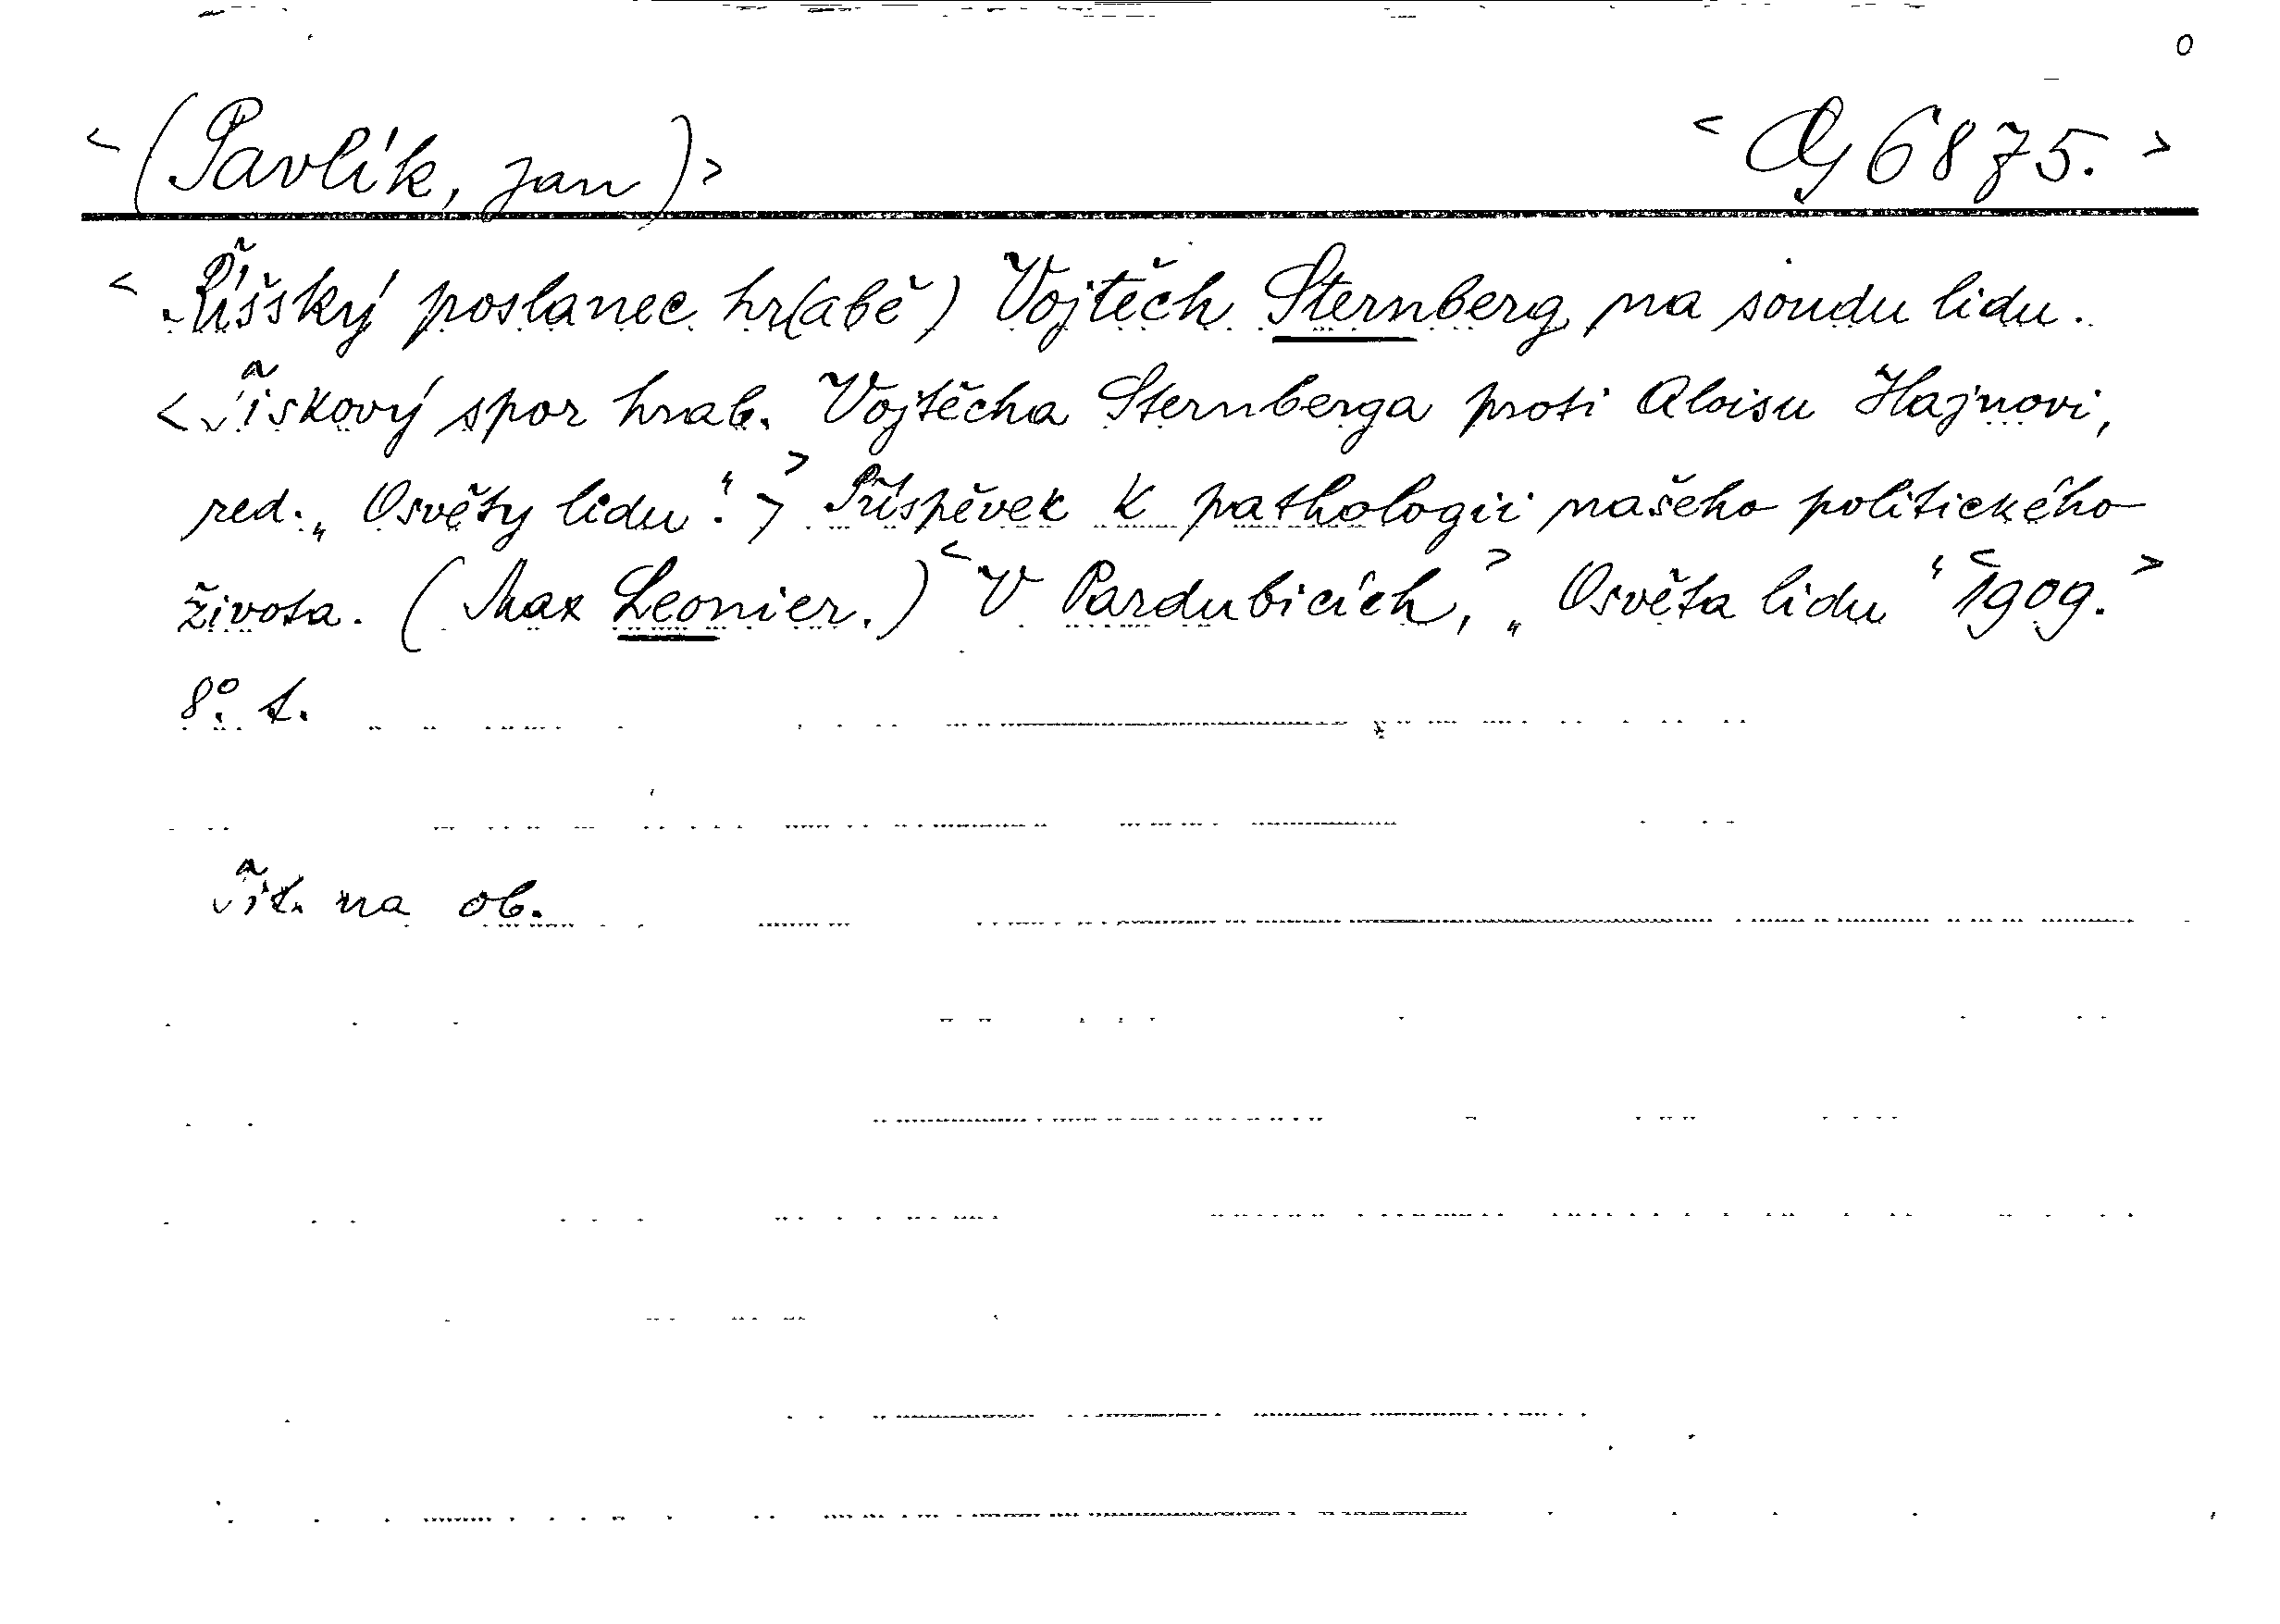 < (Pavlík, Jan) > < Og 6875. >
< Říšský poslanec hr(abě) Vojtěch Sternberg na soudu lidu.
< Tiskový spor hrab. Vojtěcha Sternberga proti Aloisu Hajnovi,
red. „Osvěty lidu“. > Příspěvek k pathologii našeho politického
života. (Max Leonier.) < V Pardubicích, > „Osvěta lidu“ < 1909. >
8°. t.
tit. na ob.